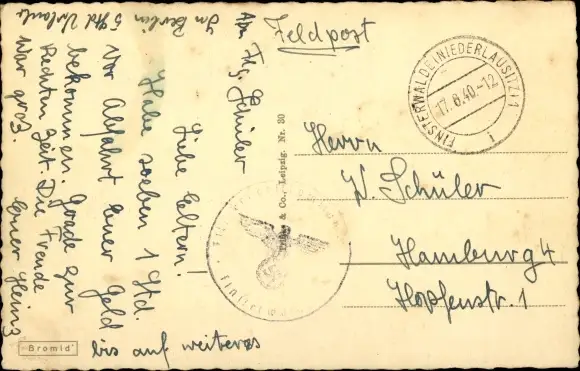 Feldpost
Abs. Flg. Schüler
Liebe Eltern!
Habe soeben 1 Std.
vor Abfahrt Euer Geld
bekommen. Grade zur
Rechten Zeit. Die Freude
war groß.
Euer Heinz
bis auf weiteres
In Berlin 5 Std Urlaub
Herrn
W. Schüler
Hamburg 4
Hopfenstr. 1
FINSTERWALDE(NIEDERLAUSITZ)1
17.6.40.-12
& Co., Leipzig. Nr. 30
Bromid